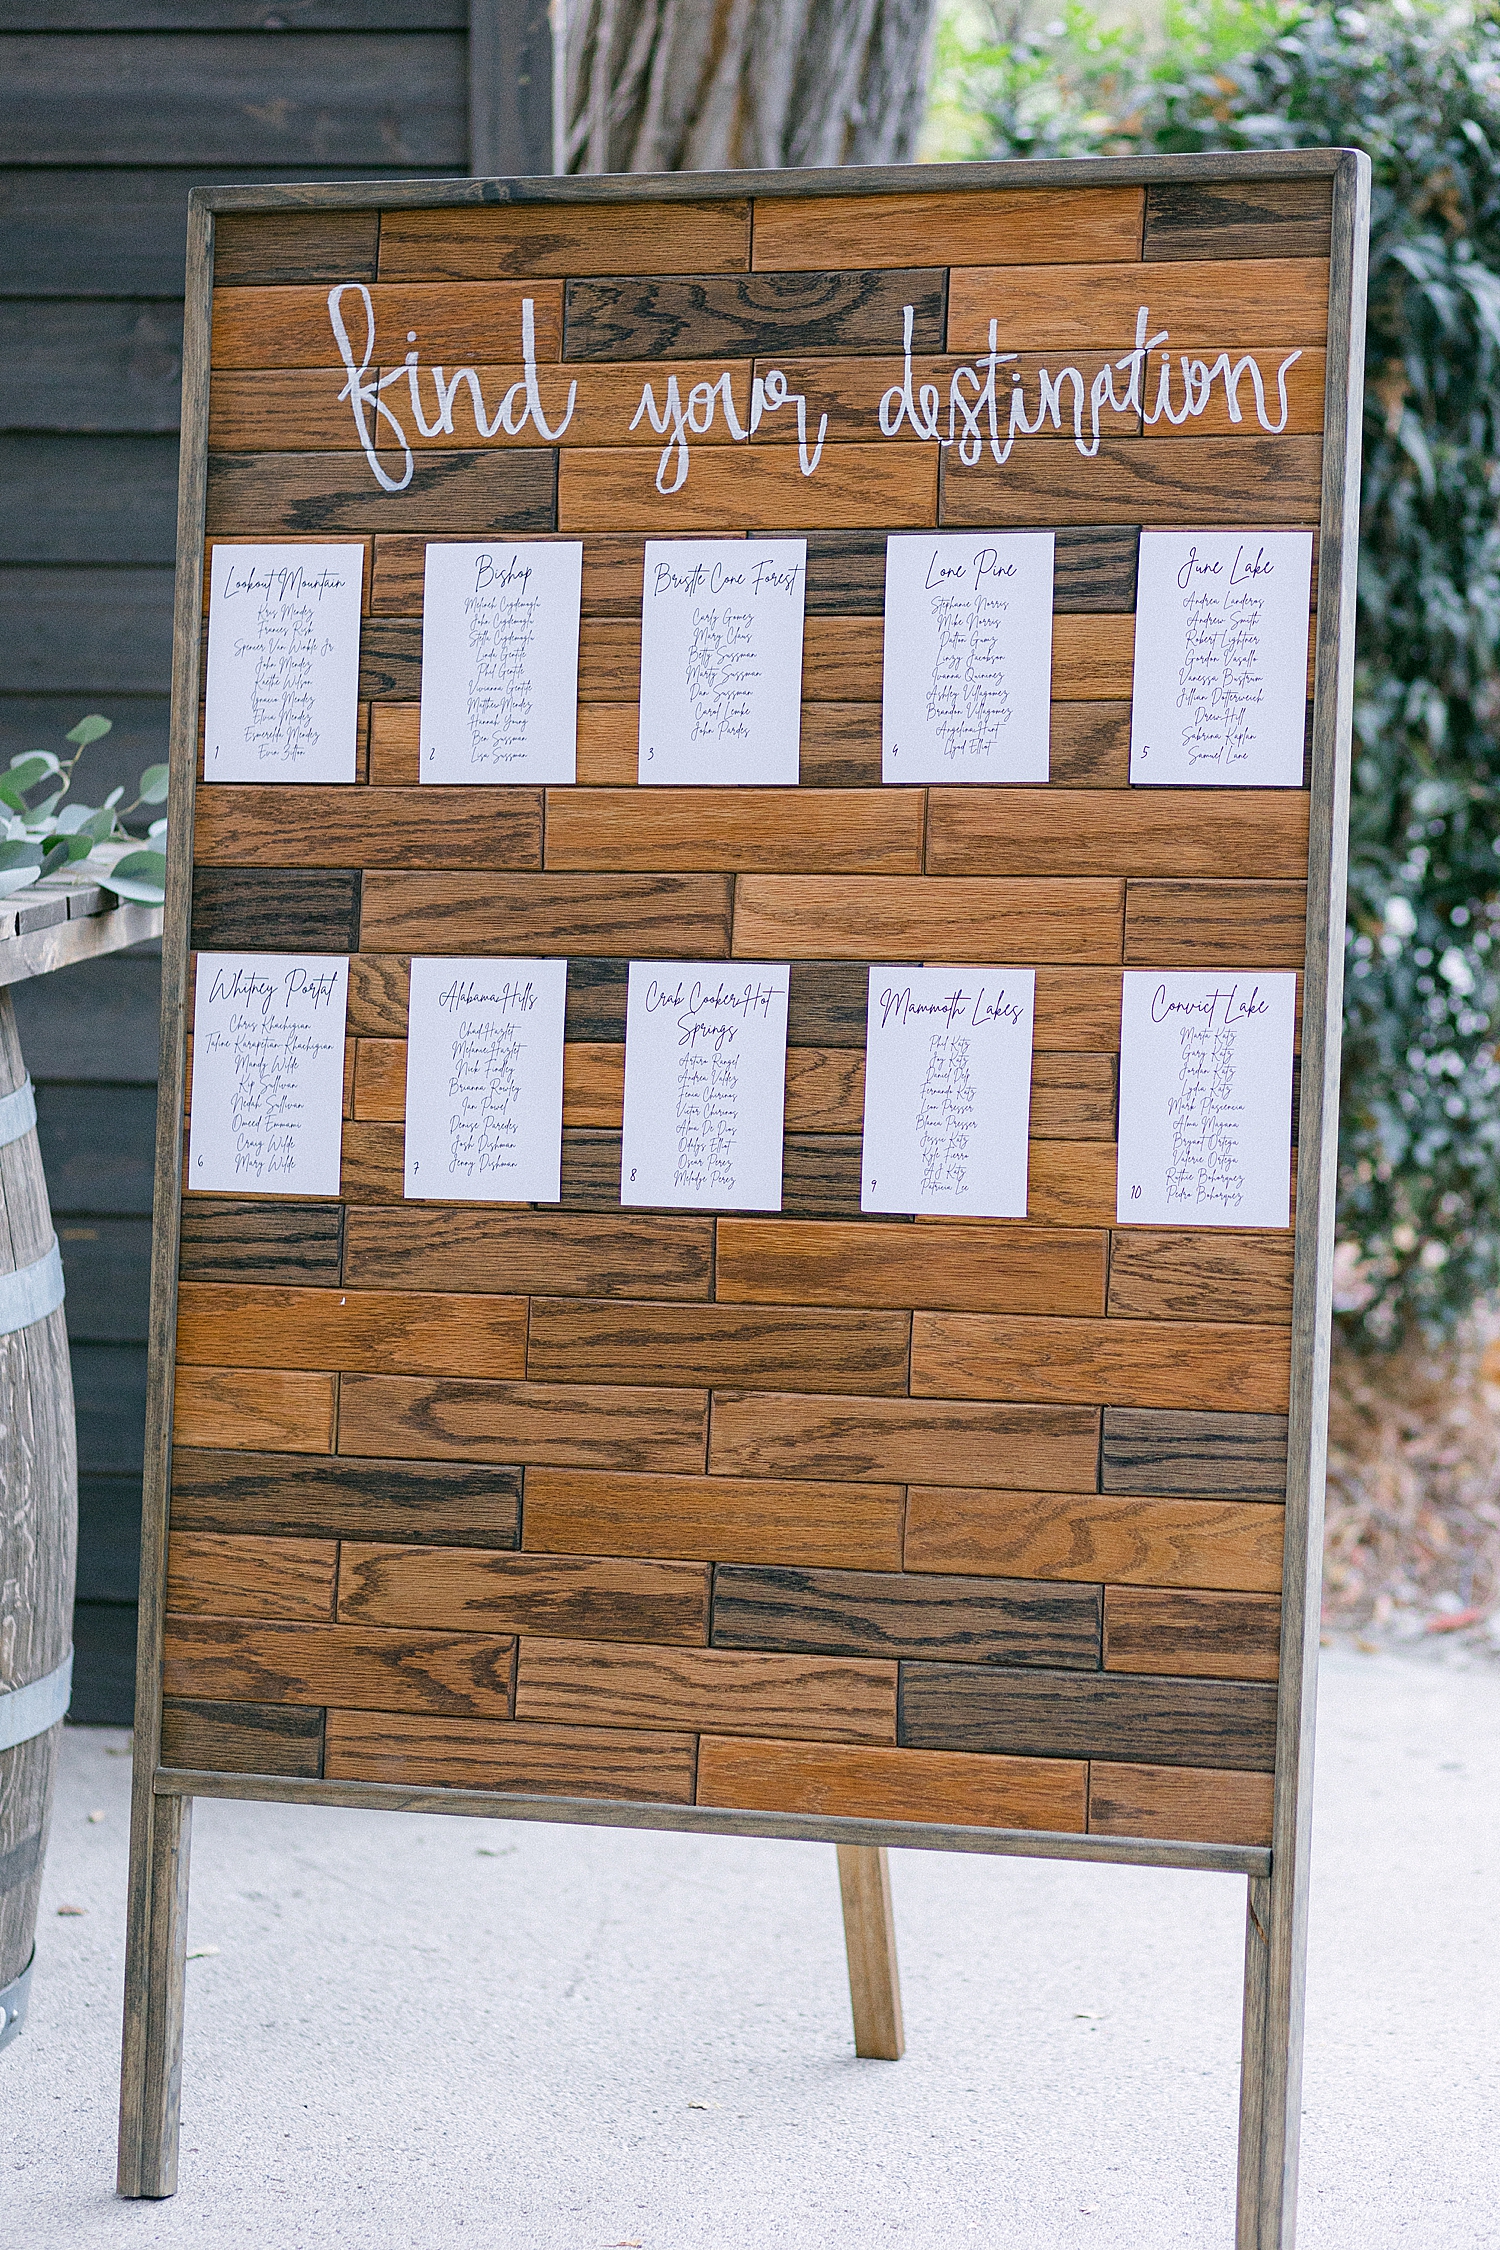 find your destination
Lookout Mountain
Kris Mendez
Frances Risk
Spencer Van Winkle Jr
John Mendez
Kaethe Wilson
Ignacio Mendez
Elvia Mendez
Esmerelda Mendez
Evin Zilton
1
Bishop
Melineh
John
Stella
Linda Gentile
Phil Gentile
Vivianna Gentile
Mathew Mendez
Hannah Young
Ben Sussman
Lisa Sussman
2
Bristle Cone Forest
Carly Gomez
Mary Claus
Betty Sussman
Marty Sussman
Dan Sussman
Carol Lembe
John Pardes
3
Lone Pine
Stephanie Norris
Mike Norris
Dalton Gumz
Linzy Jacobson
Ivanna Quininez
Ashley Villagomez
Brandon Villagomez
Angelina Hunt
Llyod Elliot
4
June Lake
Andrea Landeros
Andrew Smith
Robert Lightner
Gordon Vasallo
Vanessa Bustrum
Jillian Dotterweich
Drew Hill
Sabrina Kaplan
Samuel Lane
5
Whitney Portal
Chris Khachigian
Taline Karapetian Khachigian
Mandy Wilde
Kip Sullivan
Nedah Sullivan
Omeed Emmami
Craig Wilde
Mary Wilde
6
Alabama Hills
Chad Hazlet
Melanie Hazlet
Nick Findley
Brianna Rowley
Ian Powel
Denise Paredes
Josh Dishman
Jenny Dishman
7
Crab Cooker Hot
Springs
Arturo Rangel
Andrea Valdez
Fenia Chirinos
Victor Chirinos
Alma De Dios
Odalys Elliot
Oscar Perez
Melodye Perez
8
Mammoth Lakes
Phil Katz
Joy Katz
Daniel
Fernanda Katz
Leon Presser
Blanca Presser
Jessie Katz
Kyle Fierro
AJ Katz
Patricia Lee
9
Convict Lake
Marta Katz
Gary Katz
Jordan Katz
Lydia Katz
Mark Plascencia
Alma Magana
Bryant Ortega
Valerie Ortega
Ruthie Bohorquez
Pedro Bohorquez
10